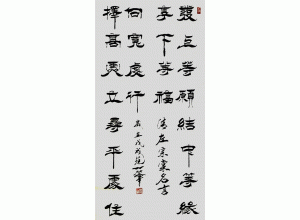 發上等願結中等緣
享下等福
清左宗棠名言
擇高處立尋平處住
向寬處行